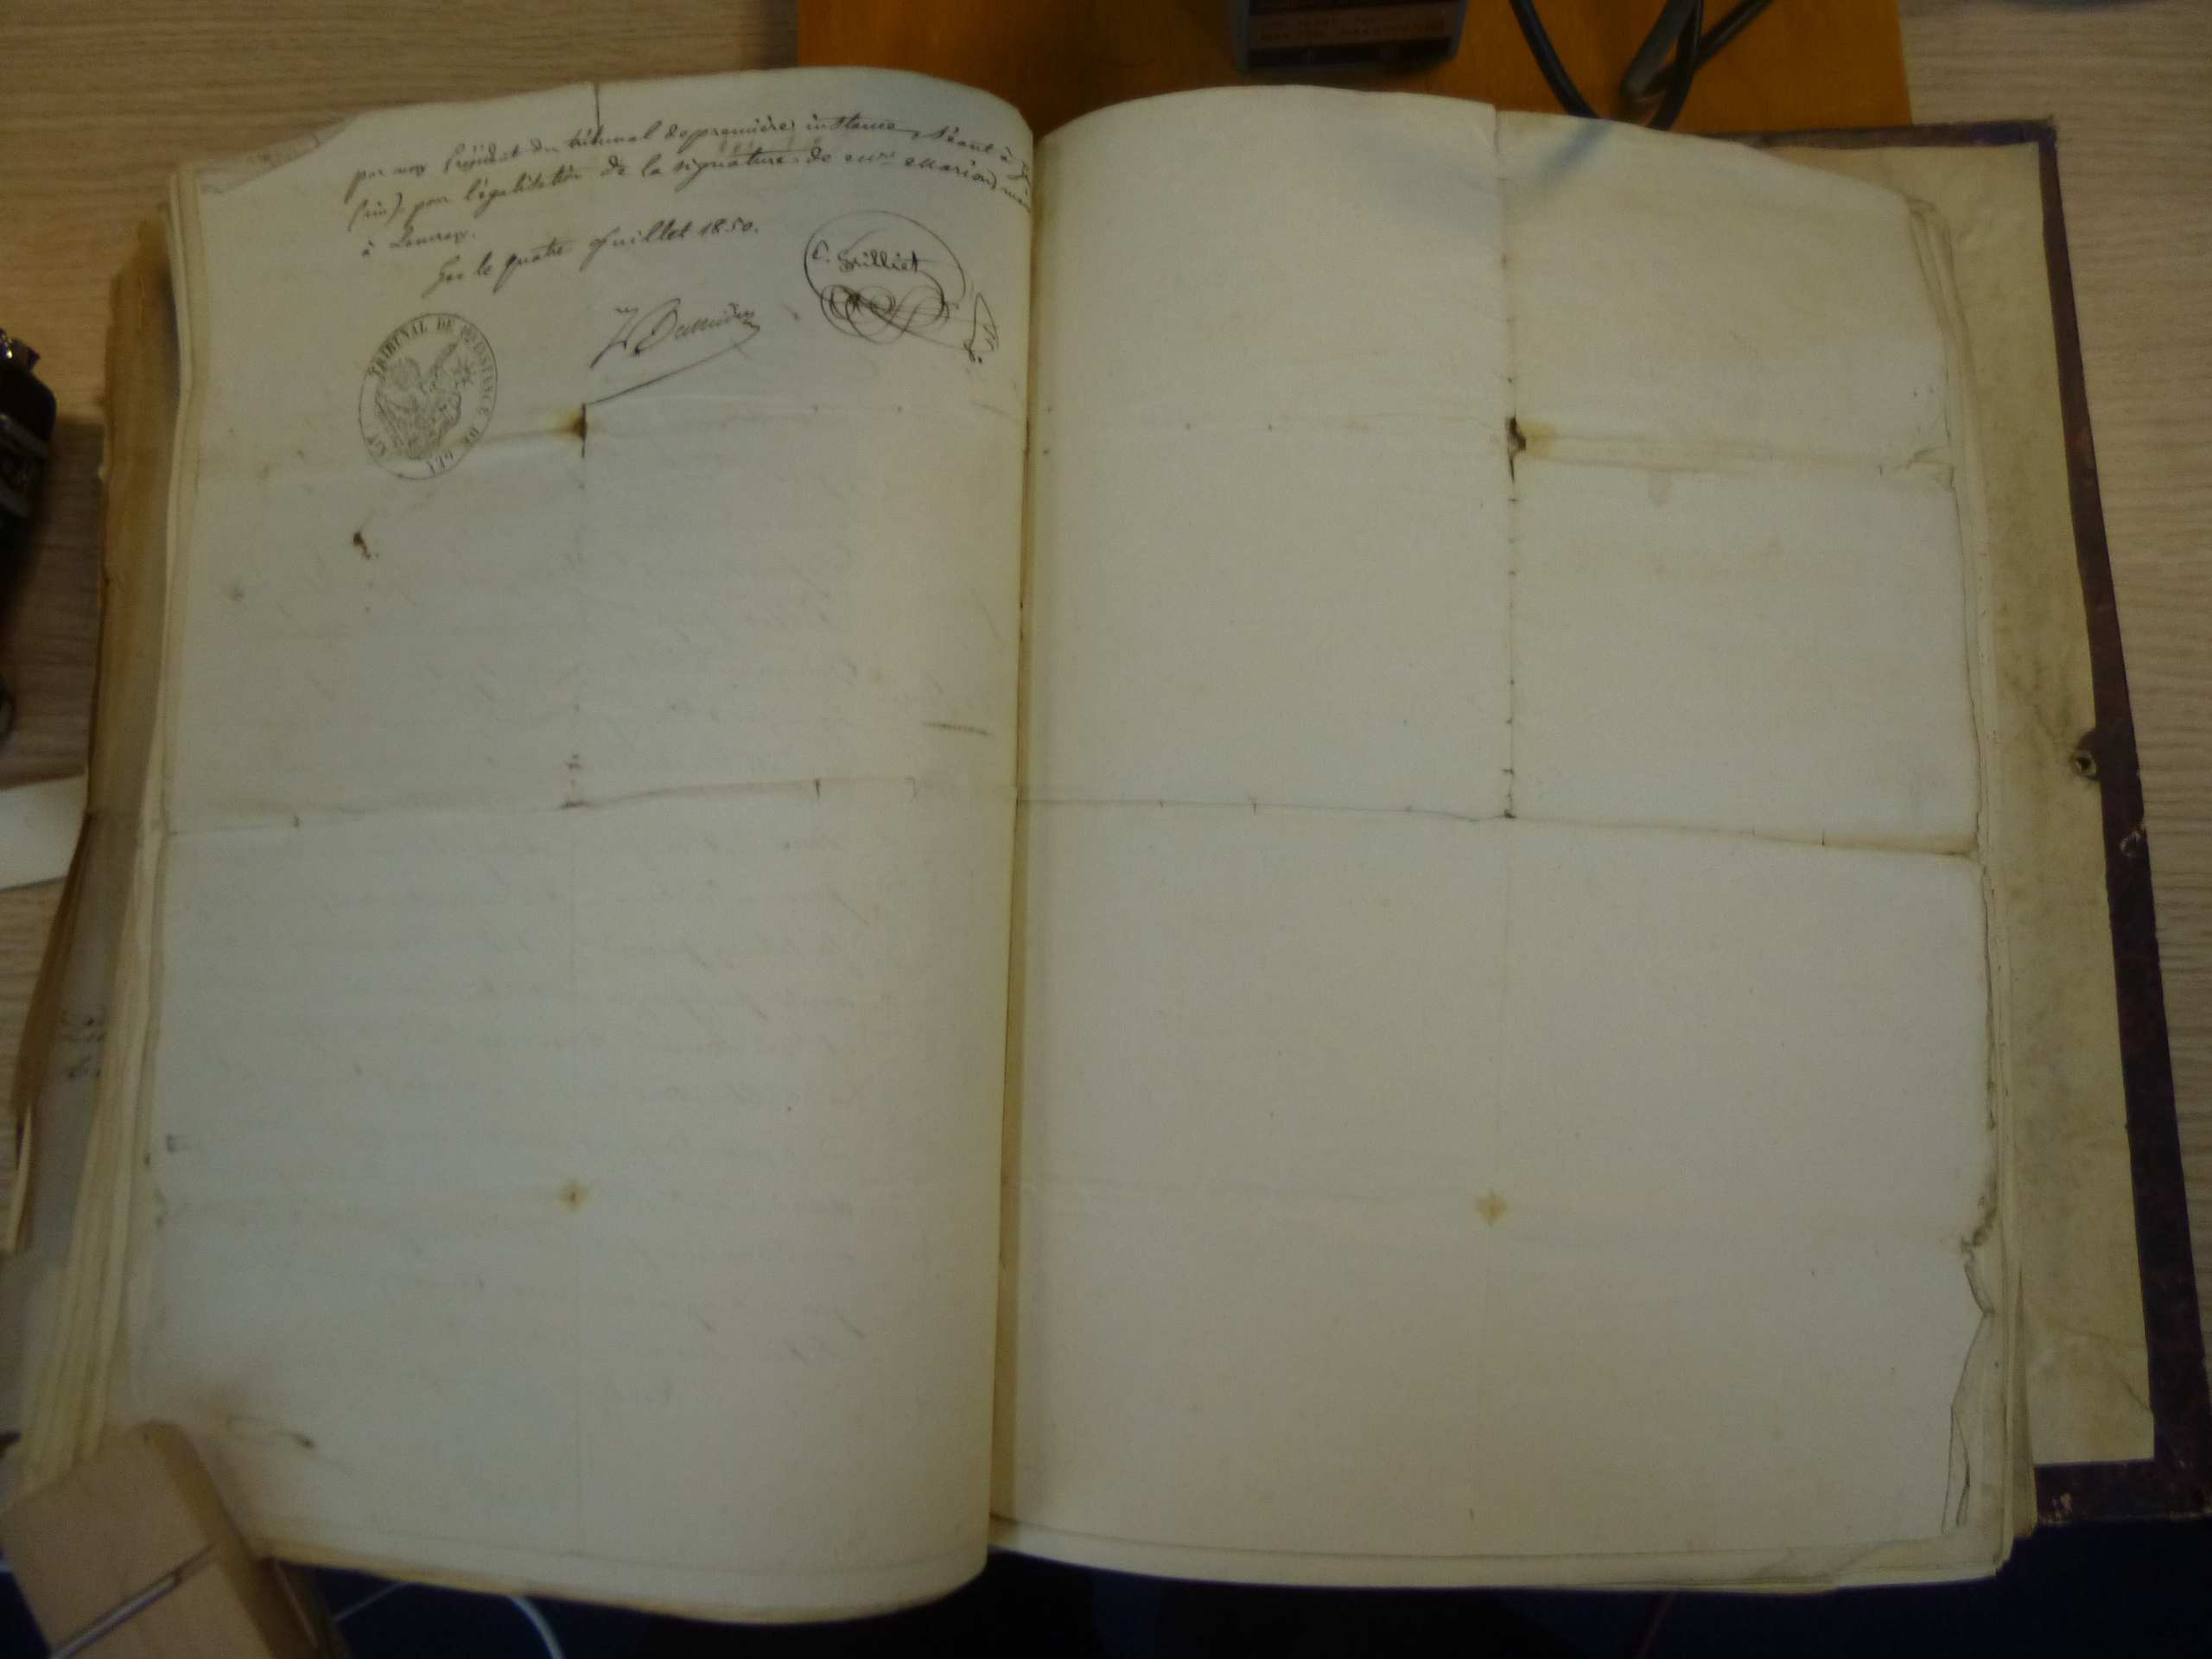 par nous Président du tribunal de première instance, séant à
(ain), pour légalisation de la signature de Mr Marion,
à
Gex le quatre Juillet 1850.
TRIBUNAL DE 1re INSTANCE DE GEX
AIN